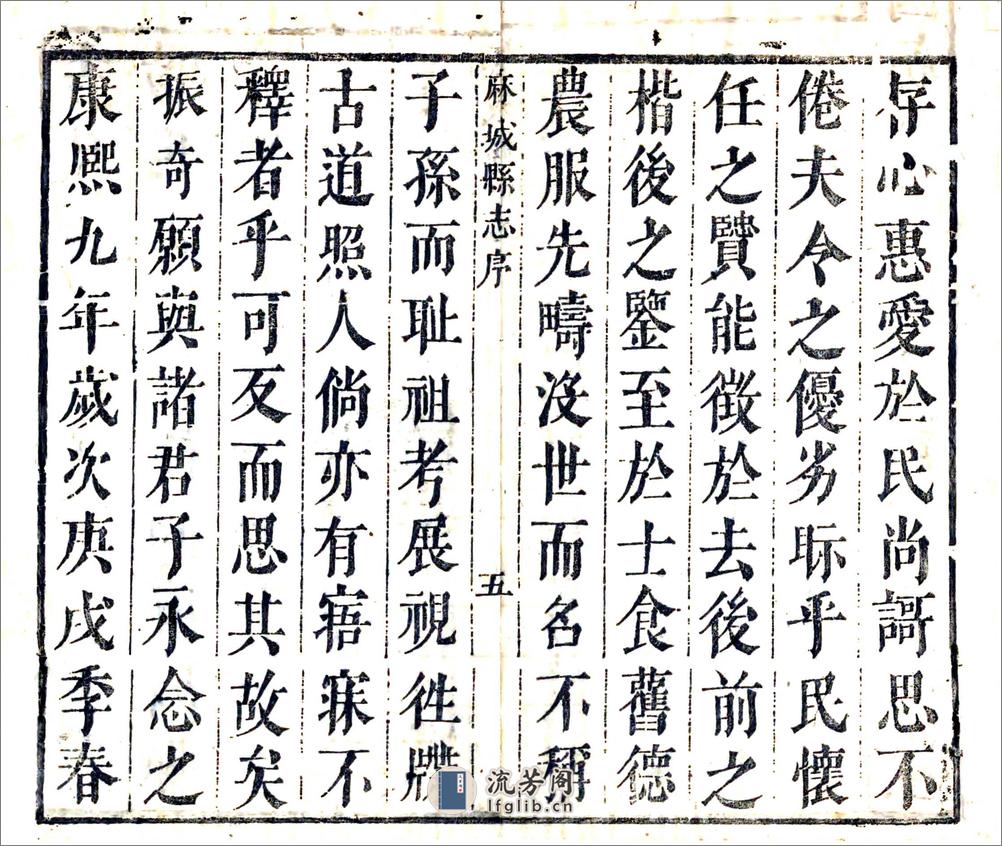 存心惠愛於民尚謌思不
倦夫令之優劣眎乎民懷
任之賢能徴於去後前之
楷後之鑒至於士食舊德
農服先疇沒世而名不稱
麻城縣志序
五
子孫而耻祖考展視徃牒
古道照人倘亦有寤寐不
釋者乎可反而思其故矣
振奇願與諸君子永念之
康熙九年歲次庚戌季春
流芳阁
lfglib.cn